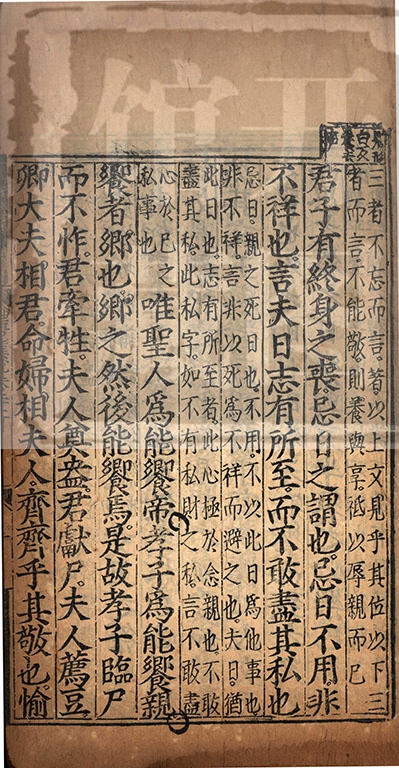 三者不忘而言。著以上文見乎其位以下三
者而言。不能敬則養與享祗以辱親而已
君子有終身之喪忌日之謂也。忌日不用。非
不祥也。言夫日志有所至。而不敢盡其私也
忌日。親之死日也。不用。不以此日爲他事也
非不祥。言非以死爲不祥而避之也。夫日。猶
此日也。志有所至者。此心極於念親也。不敢
盡其私。此私字。如不有私財之私。言不敢盡
心於己之
私事也
唯聖人爲能饗帝。孝子爲能饗親
饗者鄉也。鄉之然後能饗焉。是故孝子臨尸
而不怍。君牽牲。夫人奠盎。君獻尸。夫人薦豆。
卿大夫相君。命婦相夫人。齊齊乎其敬也。愉